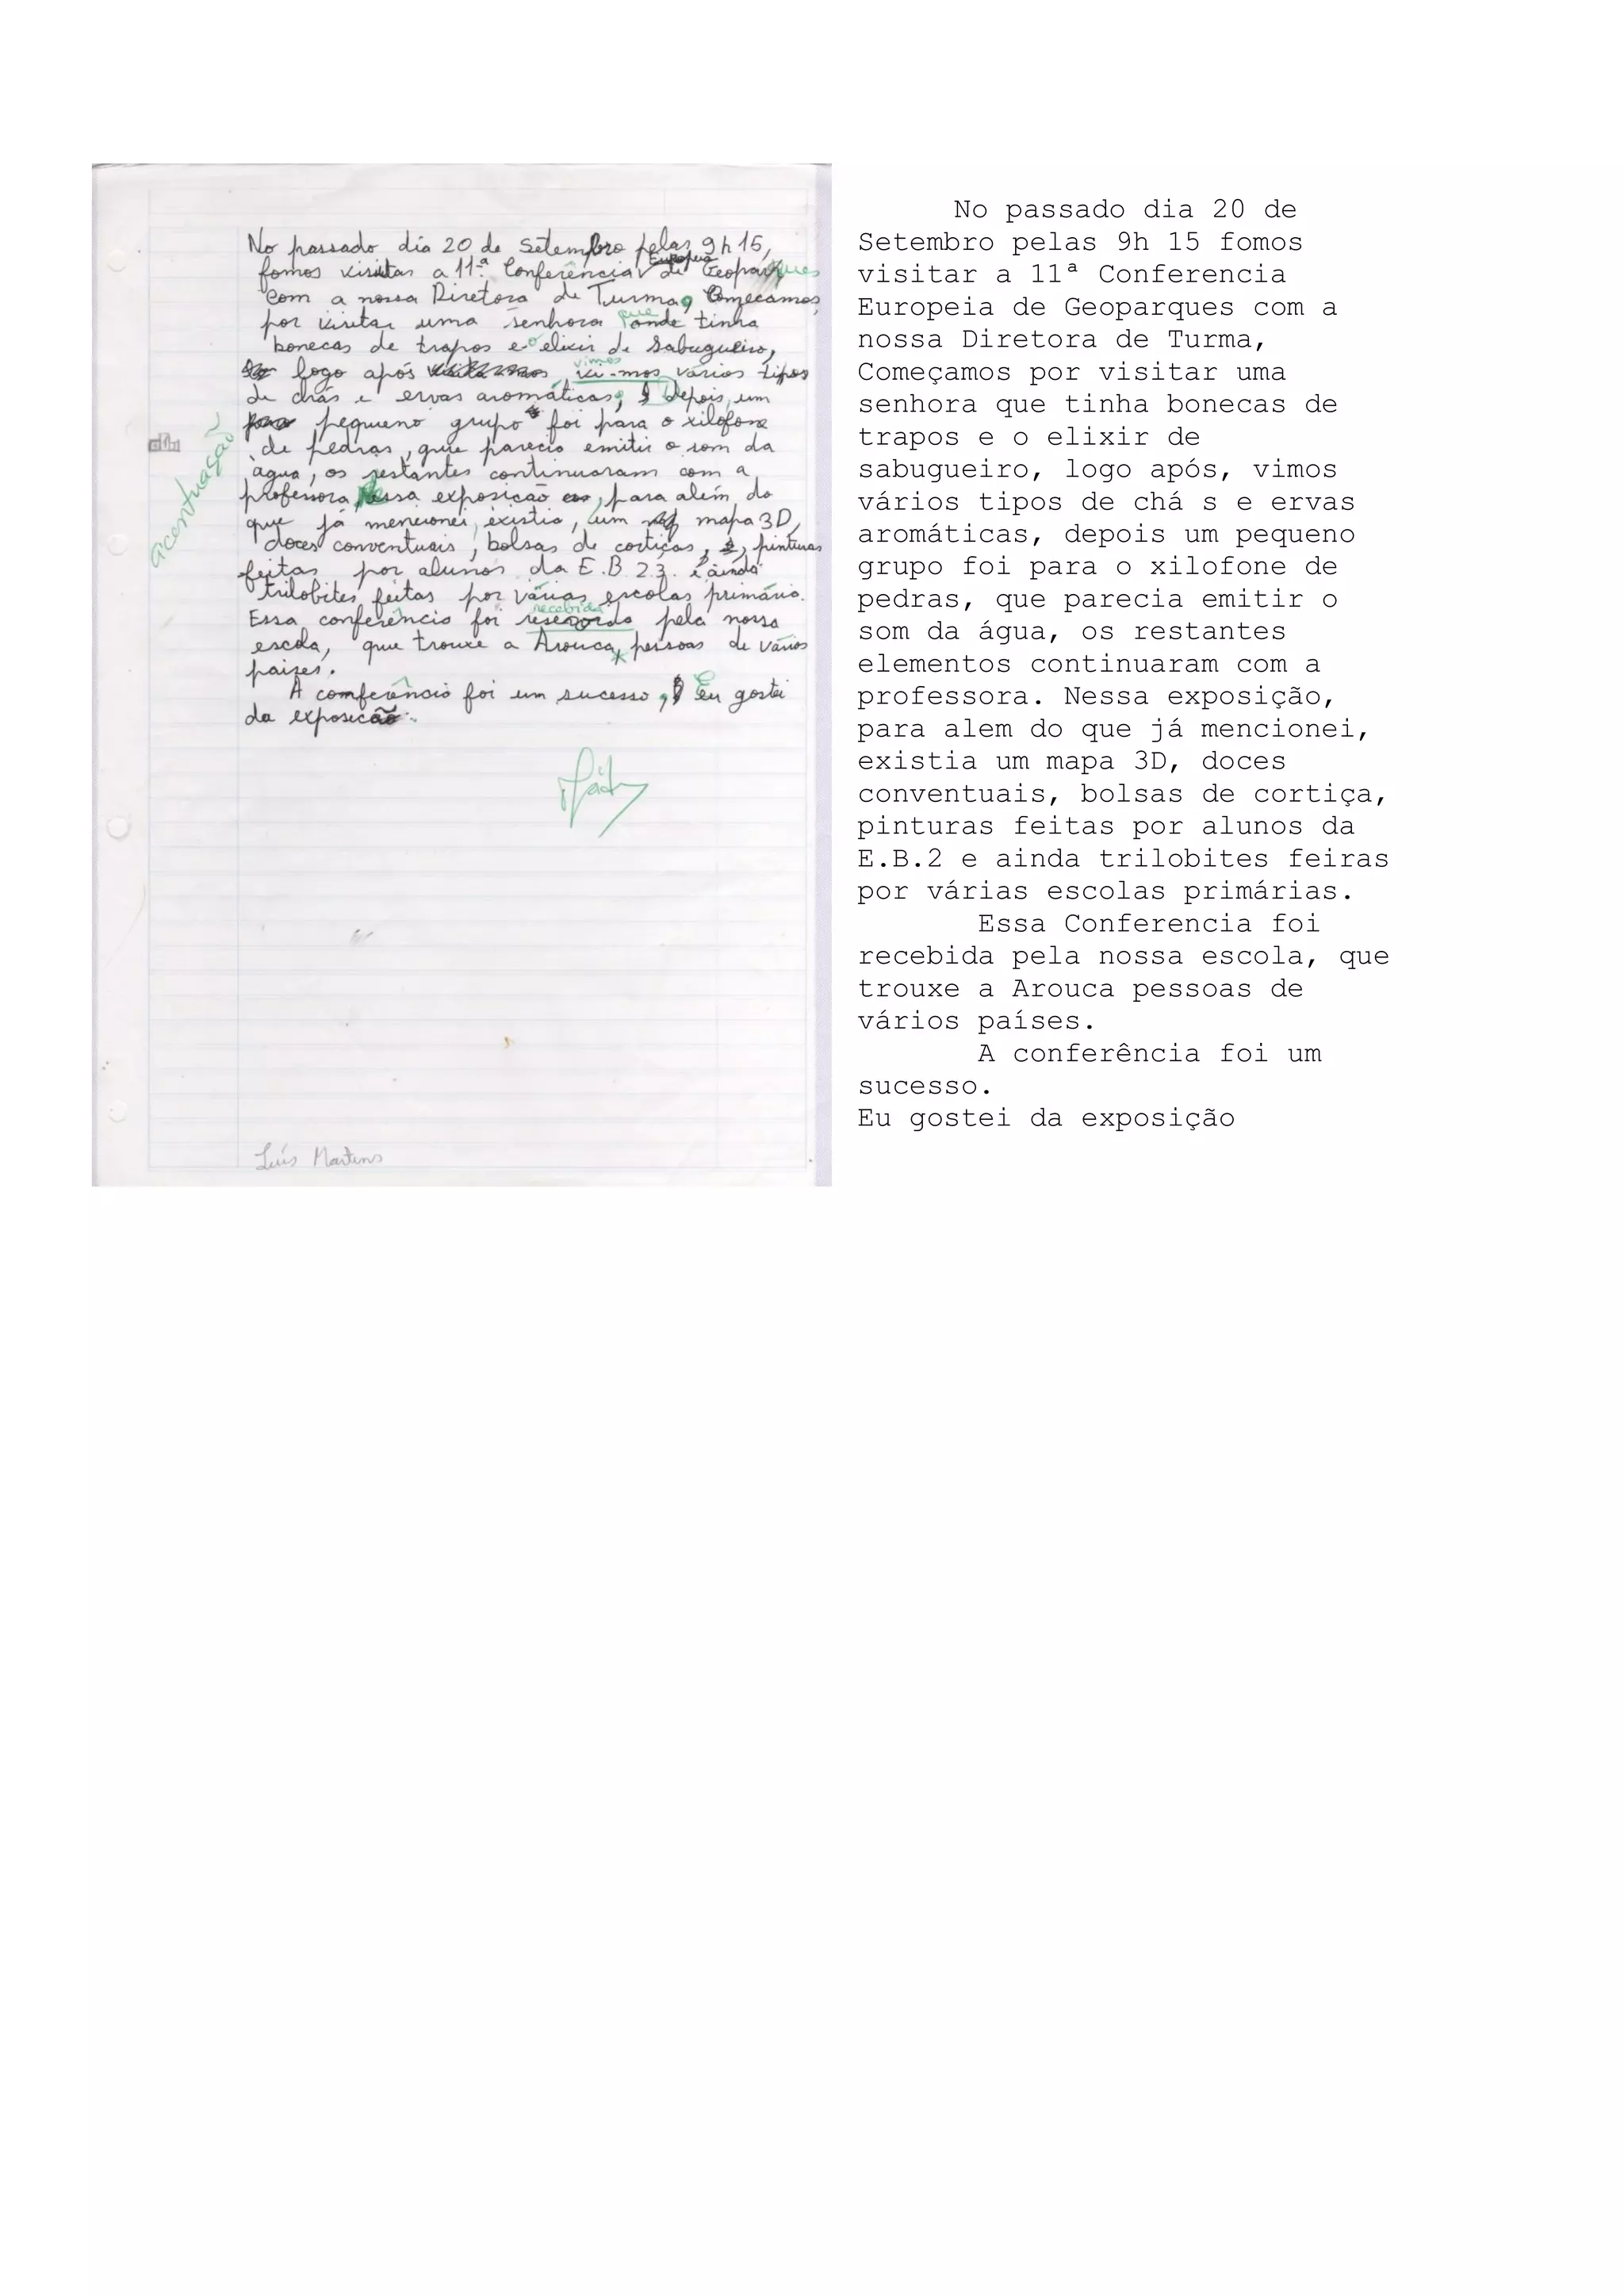 No passado dia 20 de Setembro pelas 9h15,
fomos visitar a 11ª Conferência Europeia de Geoparques
com a nossa Diretora de Turma, Começamos,
por visitar uma senhora que onde tinha
bonecas de trapos e o elixir de Sabugueiro,
logo após vimos vi-mos varios tipos
de chás e ervas aromáticas, depois, um
pequeno grupo foi para o xilofone
de pedras, que parecia emitir o som da
água, os restantes continuaram com a
professora, Nessa exposição, para além do
que já mencionei, existia, um mapa 3D,
doces conventuais, bolsas de cortiças, pinturas
feitas por alunos da E.B 2.3. e ainda
trilobites feitas por várias escolas primária.
Essa conferência foi recebida pela nossa
escola, que trouxe a Arouca, pessoas de vários
países.
A conferência foi um sucesso, Eu gostei
da exposição.
acentuação
Luís Martins
No passado dia 20 de
Setembro pelas 9h 15 fomos
visitar a 11ª Conferencia
Europeia de Geoparques com a
nossa Diretora de Turma,
Começamos por visitar uma
senhora que tinha bonecas de
trapos e o elixir de
sabugueiro, logo após, vimos
vários tipos de chá s e ervas
aromáticas, depois um pequeno
grupo foi para o xilofone de
pedras, que parecia emitir o
som da água, os restantes
elementos continuaram com a
professora. Nessa exposição,
para alem do que já mencionei,
existia um mapa 3D, doces
conventuais, bolsas de cortiça,
pinturas feitas por alunos da
E.B.2 e ainda trilobites feiras
por várias escolas primárias.
Essa Conferencia foi
recebida pela nossa escola, que
trouxe a Arouca pessoas de
vários países.
A conferência foi um
sucesso.
Eu gostei da exposição